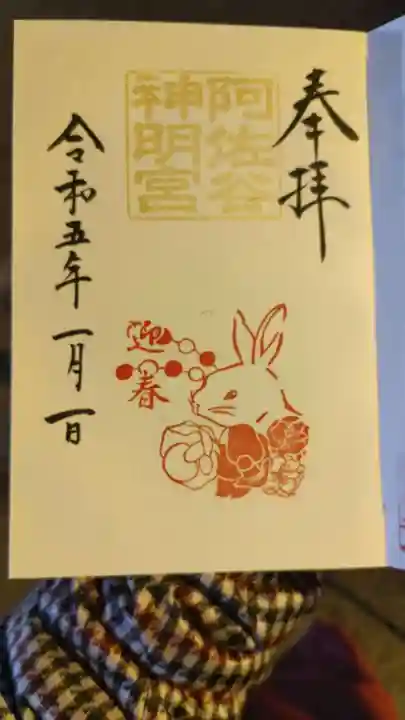 奉拝
阿佐谷
神明宮
迎春
令和五年一月一日